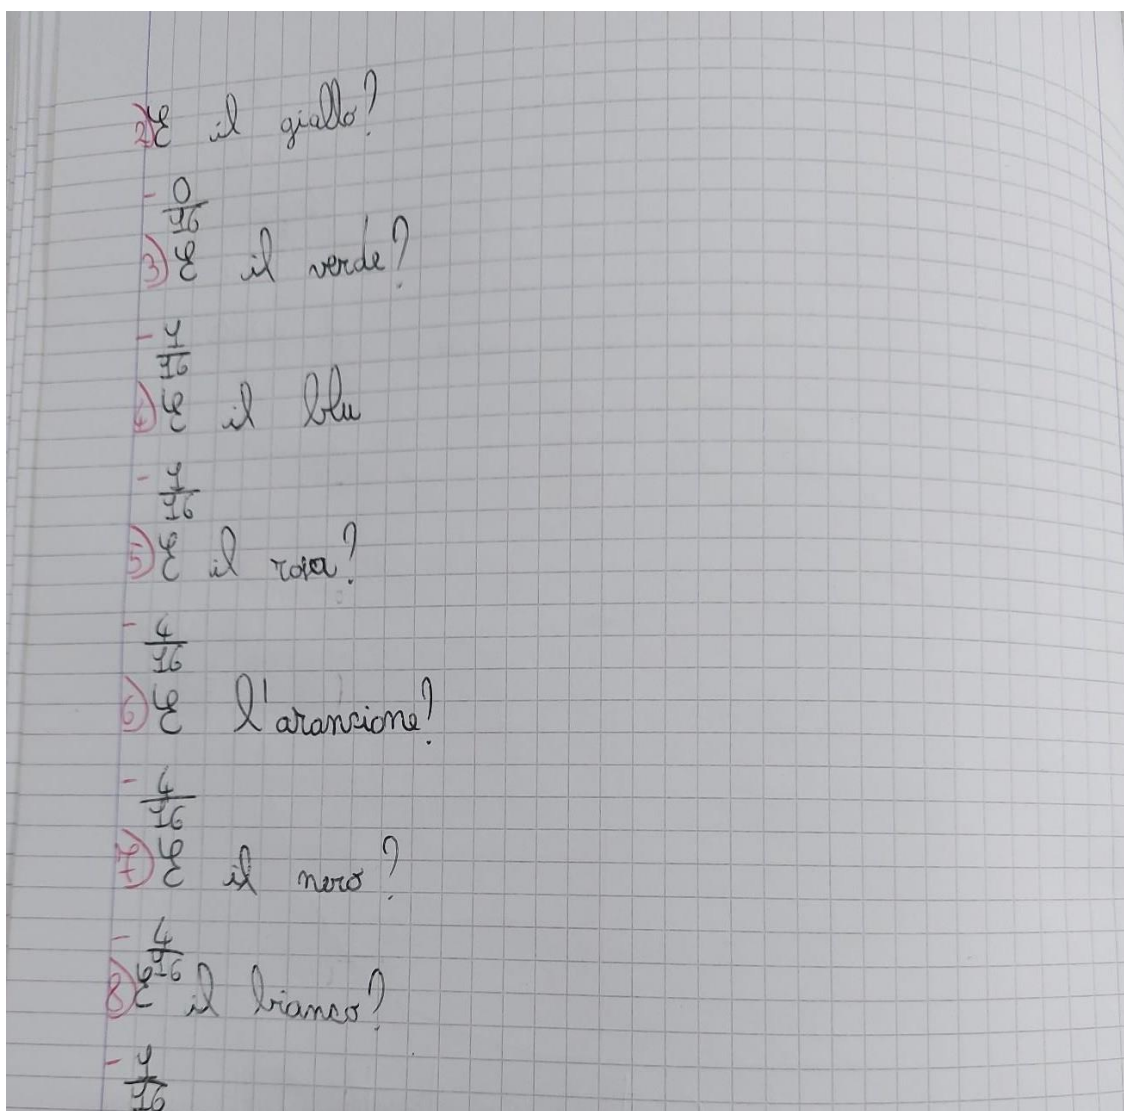 2) E il giallo?
- 0/16
3) E il verde?
- 1/16
4) E il blu
- 1/16
5) E il rosa?
- 4/16
6) E l'arancione?
- 4/16
7) E il nero?
- 4/16
8) E il bianco?
- 1/16